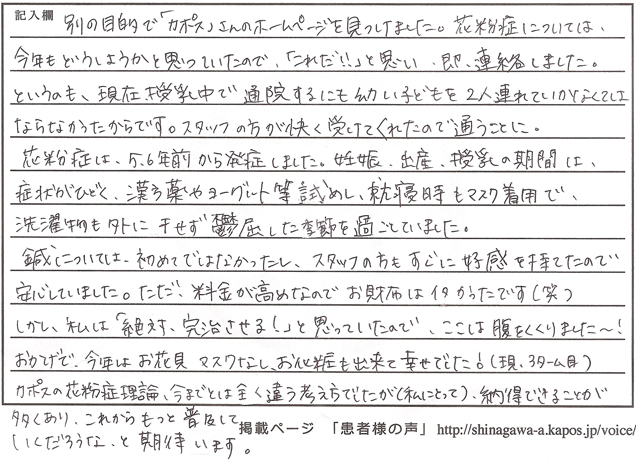 記入欄 別の目的で「カポス」さんのホームページを見つけました。花粉症については、
今年もどうしようかと思っていたので、「これだ!!」と思い、即、連絡しました。
というのも、現在授乳中で通院するにも幼い子どもを2人連れていかなくては
ならなかったからです。スタッフの方が快く受けてくれたので通うことに。
花粉症は、5、6年前から発症しました。妊娠、出産、授乳の期間は、
症状がひどく、漢方薬やヨーグルト等試めし、就寝時もマスク着用で、
洗濯物も外に干せず鬱屈した季節を過ごしていました。
鍼については、初めてではなかったし、スタッフの方もすぐに好感を持てたので
安心していました。ただ、料金が高めなのでお財布はイタかったです(笑)
しかし、私は「絶対、完治させる!」と思っていたので、ここは腹をくくりました〜!
おかげで、今年はお花見マスクなし、お化粧も出来て幸せでした!(現、3ターム目)
カポスの花粉症理論、今までとは全く違う考え方でしたが(私にとって)、納得できることが
多くあり、これからもっと普及して
いくだろうな、と期待います。
掲載ページ 「患者様の声」 http://shinagawa-a.kapos.jp/voice/